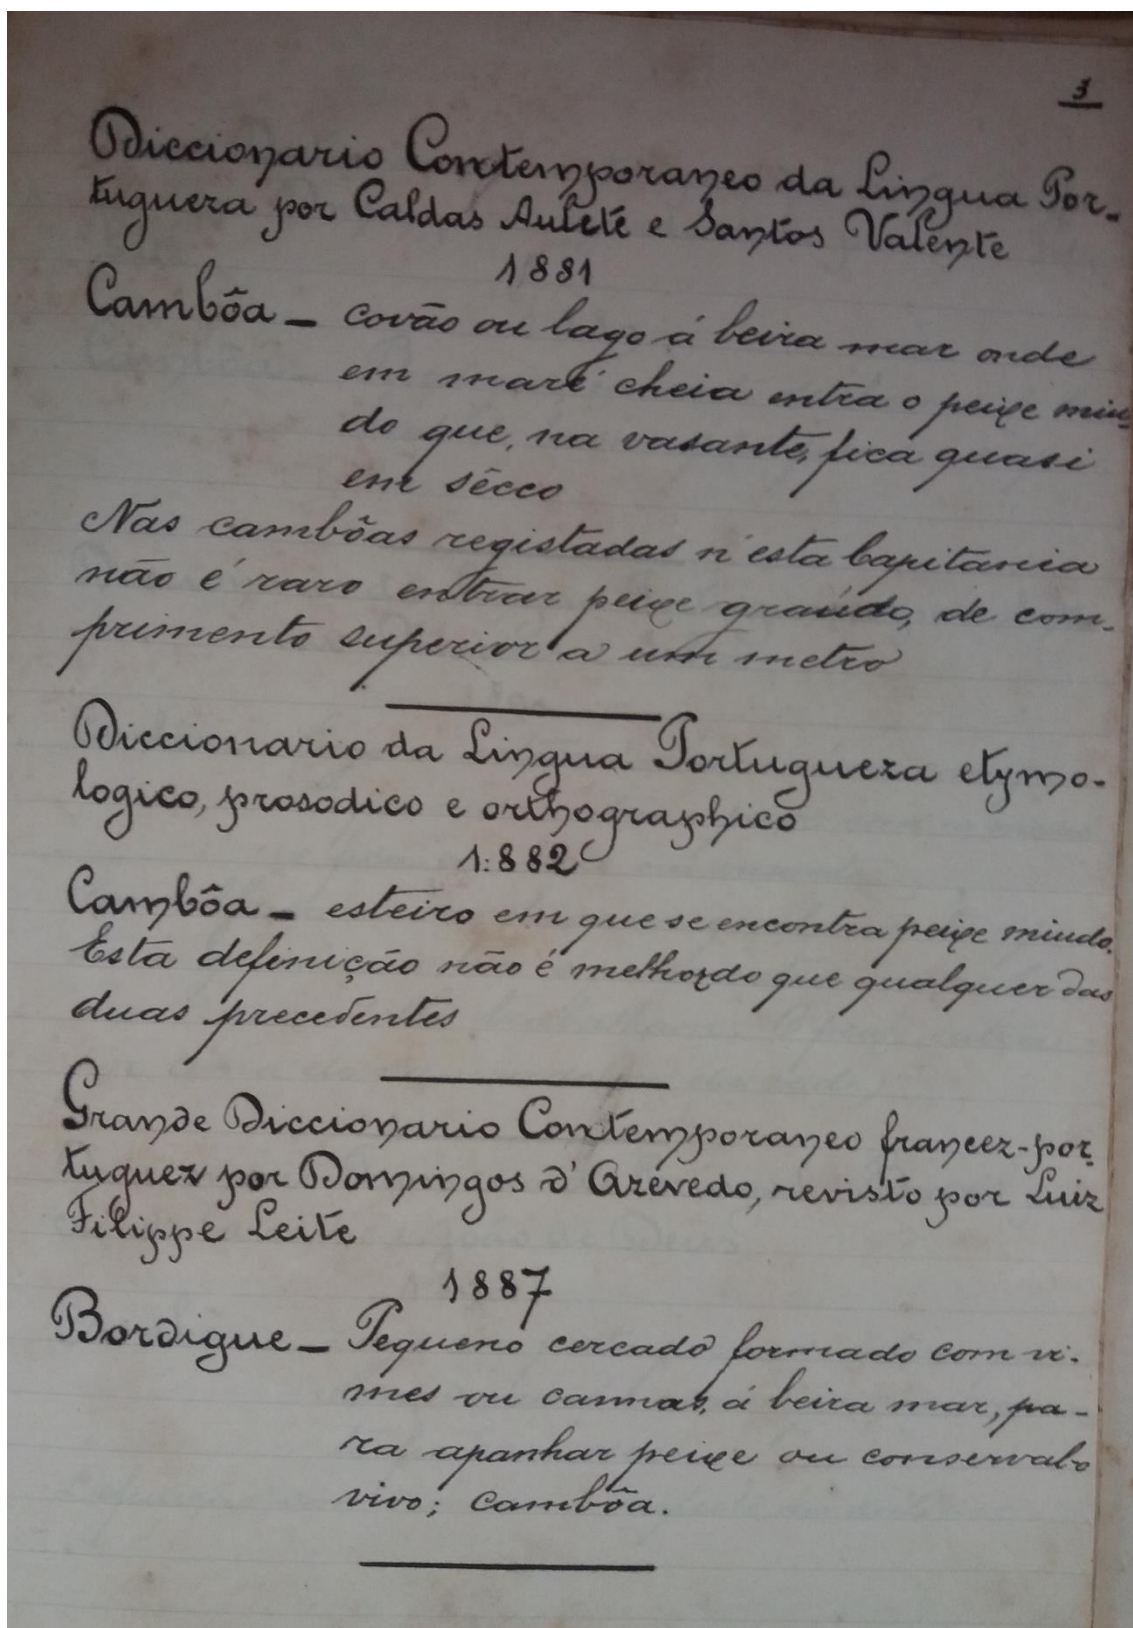 3
Diccionario Contemporaneo da Lingua Por-
tugueza por Caldas Aulete e Santos Valente
1881
Cambôa – covão ou lago á beira mar onde
em maré cheia entra o peixe miu-
do que, na vasante, fica quasi
em sêcco
Nas cambôas registadas n'esta Capitania
não é raro entrar peixe graúdo, de com-
primento superior a um metro
Diccionario da Lingua Portugueza etymo-
logico, prosodico e orthographico
1:882
Cambôa – esteiro em que se encontra peixe miudo.
Esta definição não é melhor do que qualquer das
duas precedentes
Grande Diccionario Contemporaneo francez-por-
tuguez por Domingos d'Azevedo, revisto por Luiz
Filippe Leite
1887
Bordigue – Pequeno cercado formado com vi-
mes ou cannas, á beira mar, pa-
ra apanhar peixe ou conserval-o
vivo; cambôa.